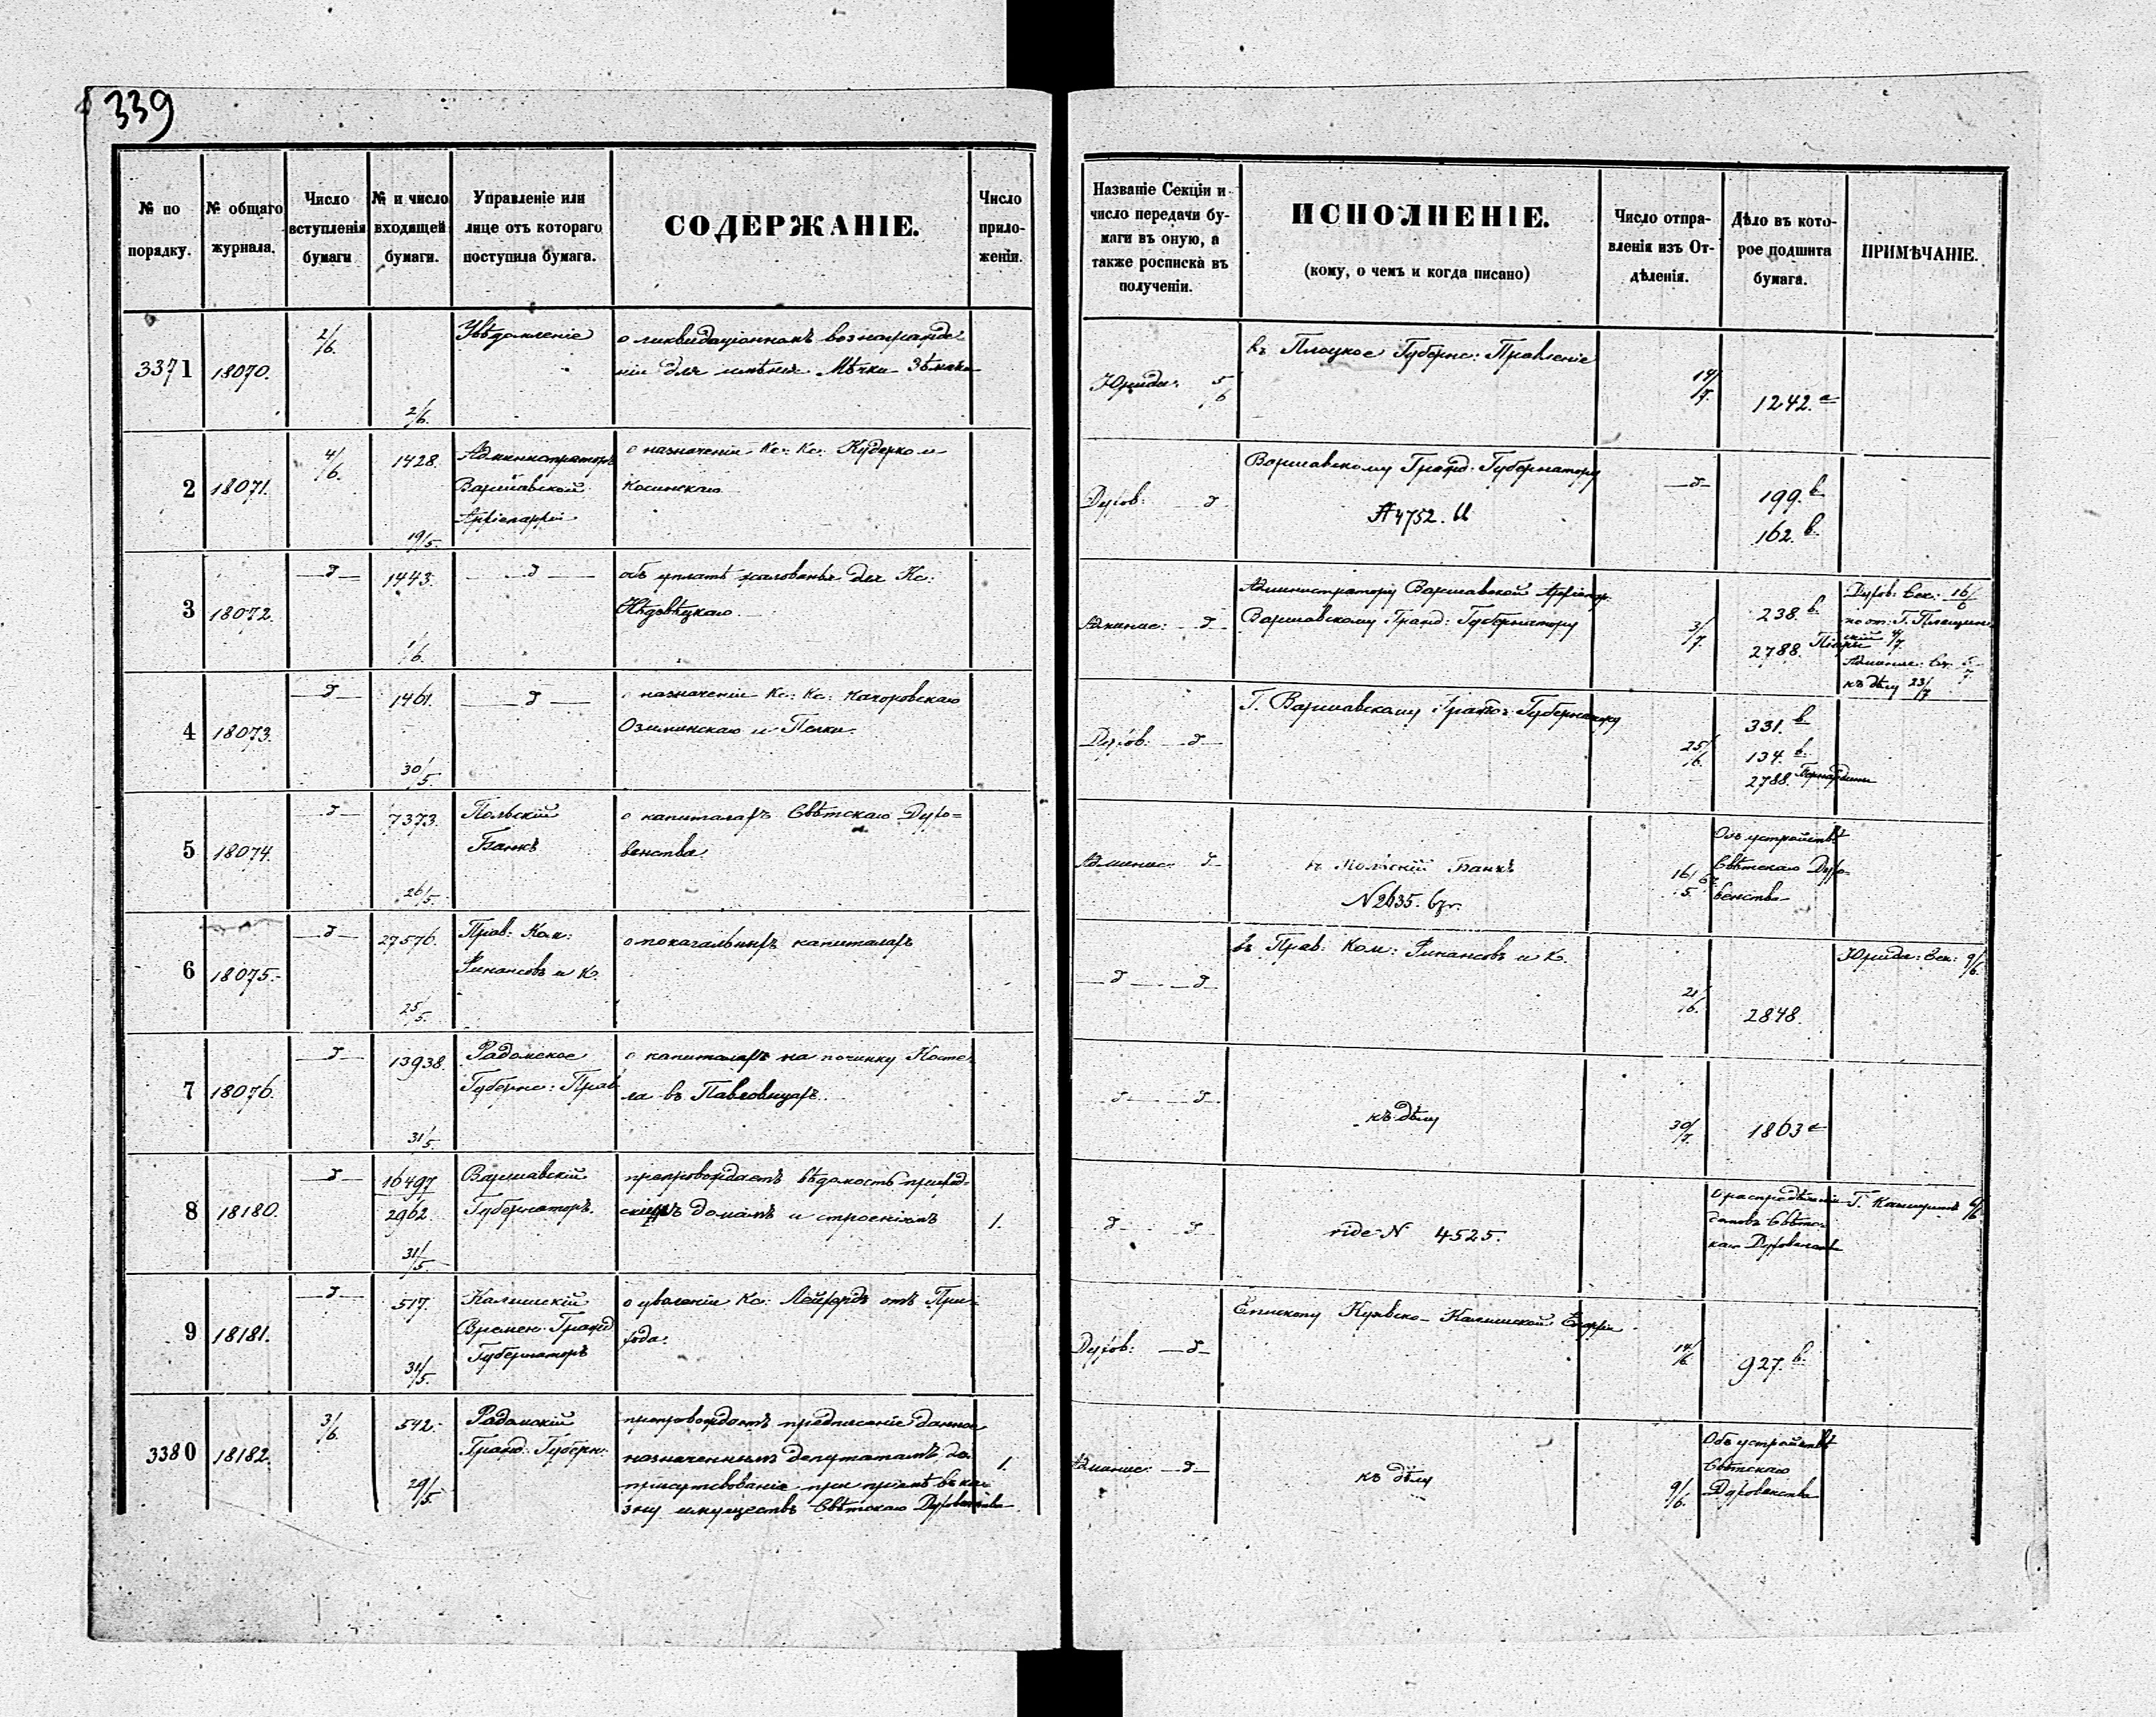 339
№ по
порядку.
№ общаго
журнала.
Число
вступленія
бумаги
№ и число
входящей
бумаги.
Управленіе или
лице отъ котораго
поступила бумага.
СОДЕРЖАНІЕ.
Число
прило-
женія.
Названіе Секціи и
число передачи бу-
маги въ оную, а
также росписка въ
полученіи.
ИСПОЛНЕНІЕ.
(кому, о чемъ и когда писано)
Число отпра-
вленія изъ От-
дѣленія.
Дѣло въ кото-
рое подшита
бумага.
ПРИМѢЧАНІЕ.
3371
18070.
2/6.
2/6.
Увѣдомленіе
о ликвидаціонномъ вознагражде-
ніи для имѣнія Мѣчки
Юриди: 5/6
въ Плоцкое Губернс: Правленіе
14/7.
1242. а
2
18071.
4/6.
1428.
19/5.
Администраторъ
Варшавской
Архіепархіи
о назначеніи Кс: Кс: Кудерко и
Косинскаго
Духов: д
Варшавскому Гражд: Губернатору
4752.
—д—
199. в.
162. в.
3
18072.
—д—
1443.
1/6.
—д—
объ уплатѣ жалованья для Кс:
Нѣдзвѣцкаго
Админис: д
Администратору Варшавской Архіепар.
Варшавскому Гражд: Губернатору
3/7.
238. в.
2788.
Духов: Сек: 16/6
къ дѣлу 23/7
4
18073.
—д—
1461.
30/5.
—д—
о назначеніи Кс: Кс: Качоровскаго
Озиминскаго и Пелки.
Духов: —д—
Г. Варшавскому Гражд: Губернатору
25/6.
331. в
134. в.
2788.
5
18074.
—д—
7373.
26/5.
Польскій
Банкъ
о капиталахъ Свѣтскаго Духо=
венства.
Админис: д
въ Польскій Банкъ
N 2635.
16/5.
Объ устройствѣ
Свѣтскаго Духо-
венства
6
18075.
—д—
27576.
25/5.
Прав: Ком:
Финансовъ и К.
о покагальныхъ капиталахъ
—д— —д—
въ Прав: Ком: Финансовъ и К.
21/6.
2848.
Юриди: Сек: 9/6.
7
18076.
—д—
13938.
31/5.
Радомское
Губернс: Прав:
о капиталахъ на починку Косте-
ла въ Павловицахъ.
—д— —д—
къ дѣлу
30/7.
1863 а
8
18180.
—д—
16497
2962
31/5.
Варшавскій
Губернаторъ.
препровождаетъ вѣдомость приход-
скимъ домамъ и строеніямъ
1.
—д— —д—
vide N 4525.
О распредѣленіи
домовъ Свѣтс-
каго Духовенства
9
18181.
—д—
517.
31/5.
Калишскій
Времен: Гражд
Губернаторъ
о уваленіи Кс: Лейхердъ отъ При-
хода.
Духов: —д—
Епископу Куявско-Калишской Епархіи
14/6.
927. в.
3380
18182.
3/6.
542.
29/5.
Радомскій
Гражд: Губерн:
препровождаетъ предписаніе данное
назначеннымъ депутатамъ до
присутствованія при пріемѣ въ ка-
зну имуществъ Свѣтскаго Духовенства
1.
Админис: —д—
къ дѣлу
9/6.
Объ устройствѣ
Свѣтскаго
Духовенства